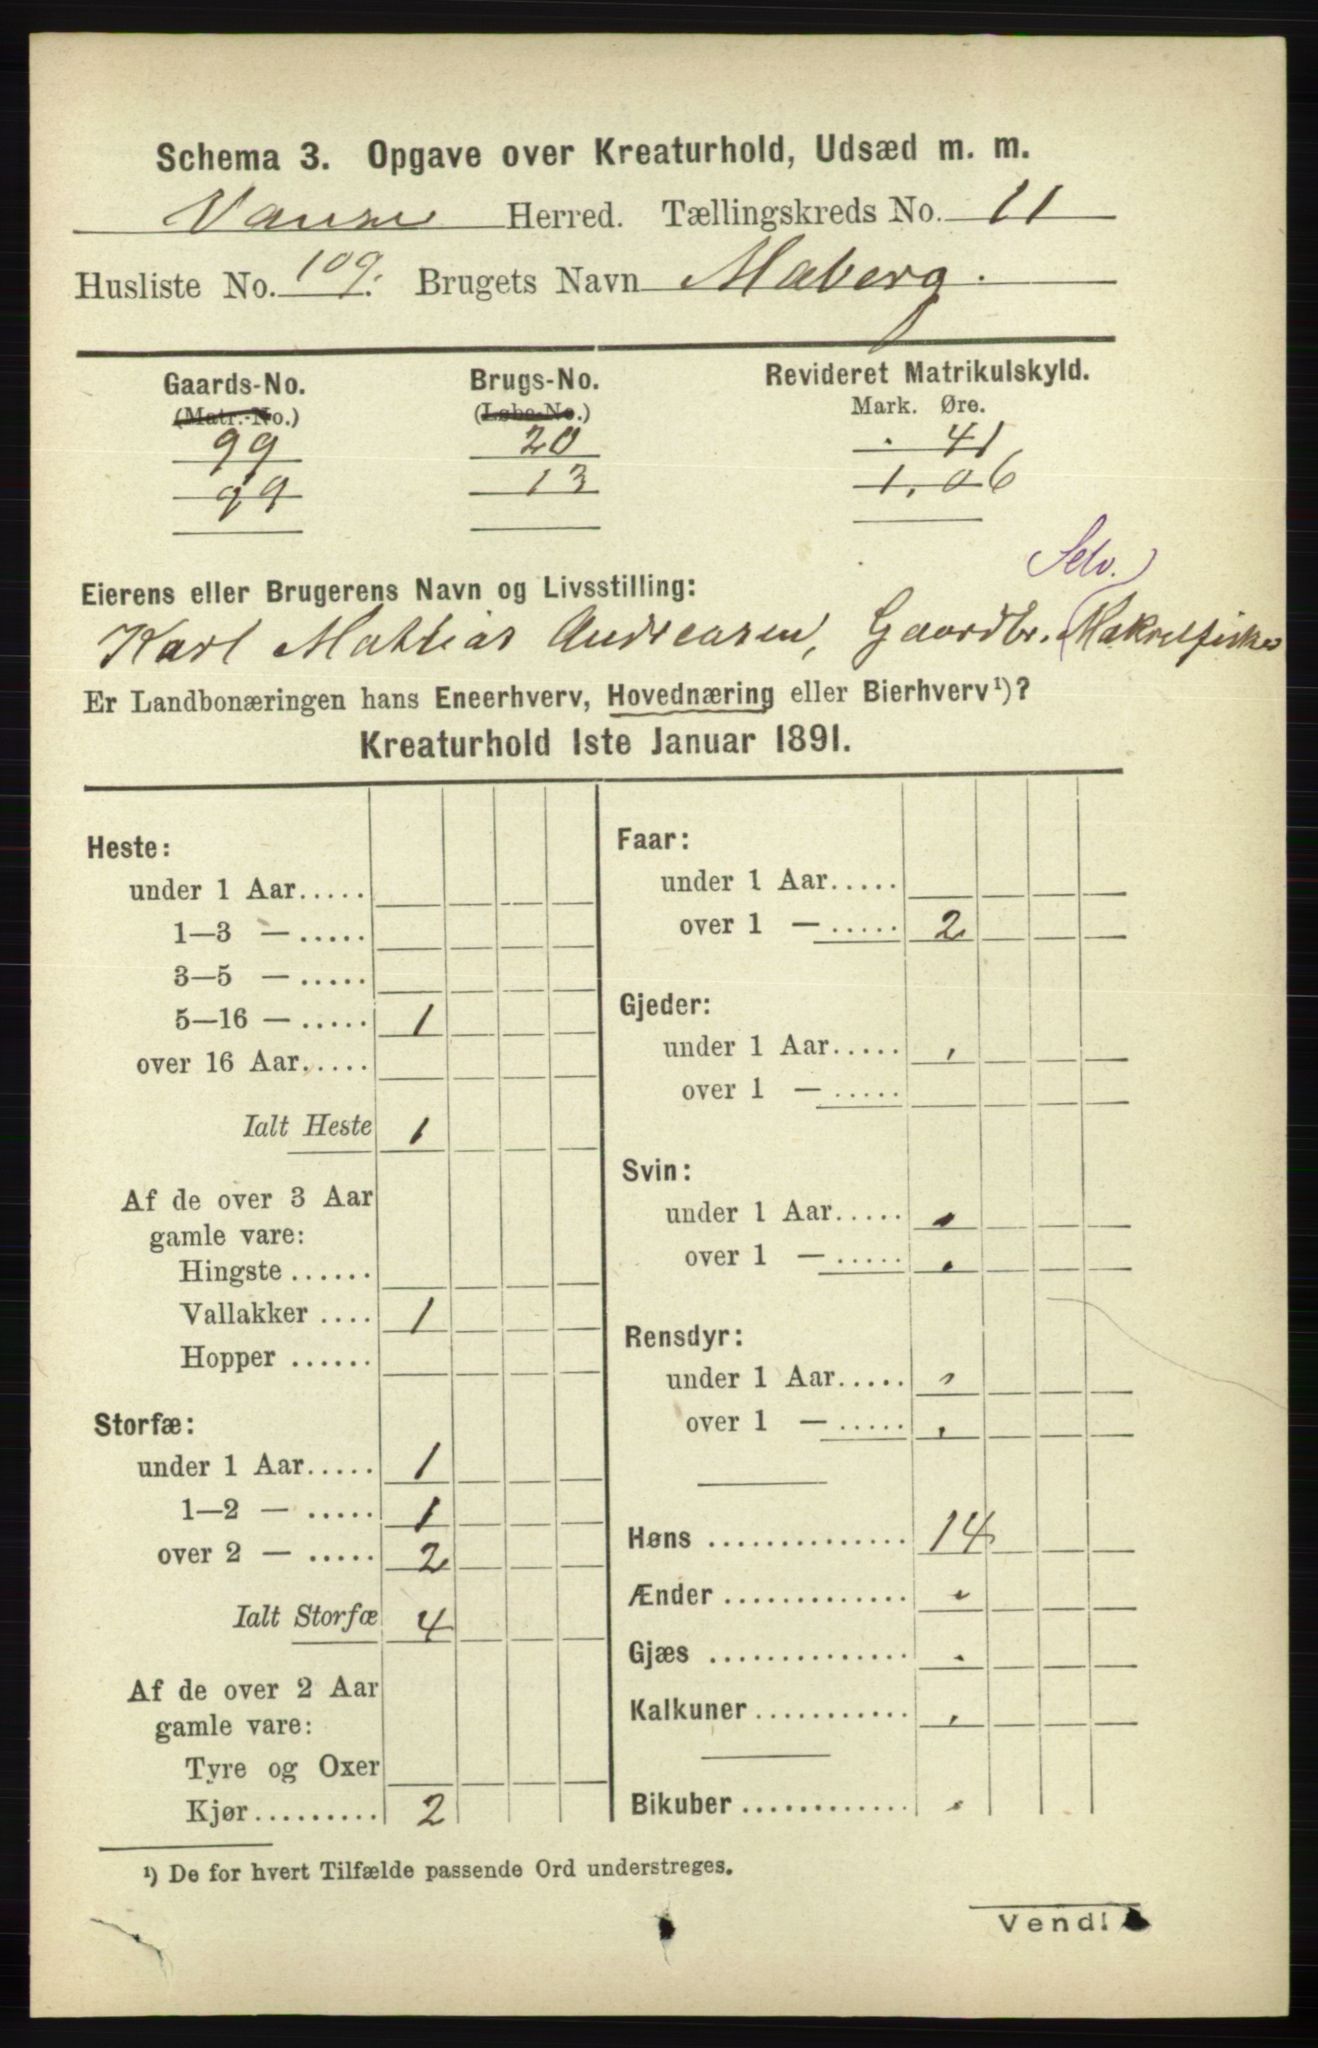 Schema 3. Opgave over Kreaturhold, Udsæd m. m.
Vanse Herred. Tællingskreds No. 11
Husliste No. 109. Brugets Navn Maberg.
Gaards-No. Brugs-No. Revideret Matrikulskyld.
(Matr.-No.) (Løbe-No.) Mark. Øre.
99 20 . 41
99 13 1,06
Selv.
Eierens eller Brugerens Navn og Livsstilling:
Karl Mathias Andreasen, Gaardbr. Makrelfisker
Er Landbonæringen hans Eneerhverv, Hovednæring eller Bierhverv¹)?
Kreaturhold 1ste Januar 1891.
Heste:
under 1 Aar.....
1—3 — .....
3—5 — .....
5—16 — ..... 1
over 16 Aar.....
Ialt Heste 1
Af de over 3 Aar
gamle vare:
Hingste ......
Vallakker .... 1
Hopper ......
Storfæ:
under 1 Aar..... 1
1—2 — ..... 1
over 2 — ..... 2
Ialt Storfæ 4
Af de over 2 Aar
gamle vare:
Tyre og Oxer
Kjør......... 2
Faar:
under 1 Aar.....
over 1 — ..... 2
Gjeder:
under 1 Aar..... ,
over 1 — .....
Svin:
under 1 Aar..... .
over 1 — ..... .
Rensdyr:
under 1 Aar..... ,
over 1 — ..... ,
Høns .............. 14
Ænder ............. .
Gjæs .............. .
Kalkuner ........... ,
Bikuber ............ .
¹) De for hvert Tilfælde passende Ord understreges.
Vend!